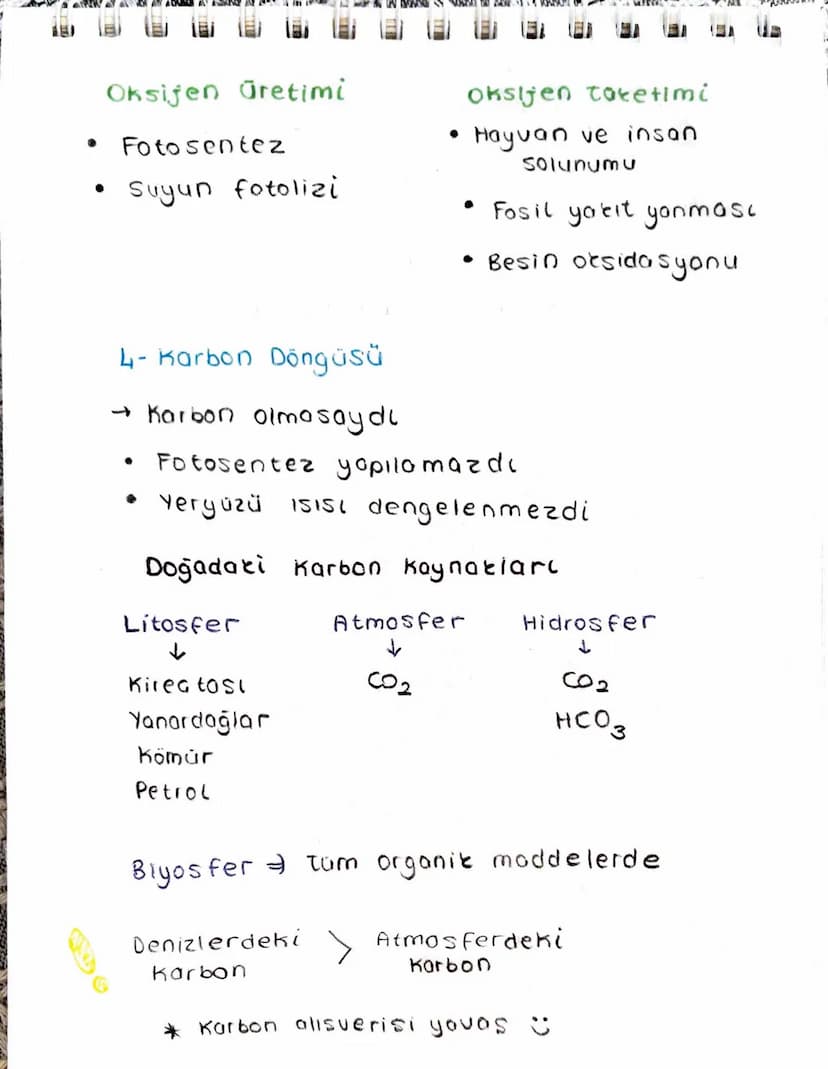 Oksijen Üretimi
• Fotosentez
• Suyun fotolizi
Oksijen Tüketimi
• Hayvan ve insan
solunumu
• Fosil yakıt yanması
• Besin oksidasyonu
4- Karbon Döngüsü
→ Karbon olmasaydı
• Fotosentez yapılamazdı
• Yeryüzü ısısı dengelenmezdi
Doğadaki Karbon Kaynakları
Litosfer
↓
Kireçtaşı
Yanardağlar
Kömür
Petrol
Atmosfer
↓
CO₂
Hidrosfer
↓
CO₂
HCO₃
Biyosfer ⇒ Tüm organik maddelerde
Denizlerdeki > Atmosferdeki
Karbon Karbon
* Karbon alışverişi yavaş :)